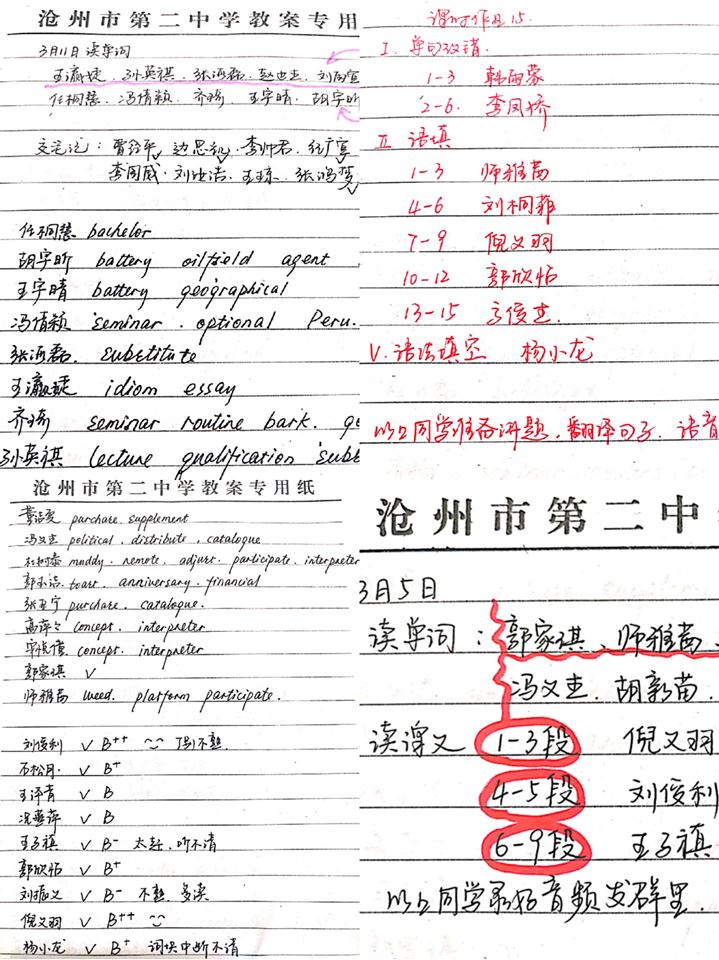 沧州市第二中学教案专用
3月11日 读单词
王瀛婕、孙英祺、张洒磊、赵世杰、刘雨萱
任桐慧、冯倩颖、齐旸、王宇晴、胡宇昕
李帅君
李国威、王臻、张鸿梦
任桐慧 bachelor
胡宇昕 battery oilfield agent
王宇晴 battery geographical
冯倩颖 seminar . optional Peru.
张洒磊. substitute
王瀛婕 idiom essay
齐旸 seminar routine bark.
孙英祺 lecture qualification
课时作业15.
I. 单句改错.
1-3 韩雨蒙
2-6. 李凤娇
II 语填
1-3 师雅苗
4-6 刘桐菲
7-9 倪义羽
10-12 郭欣怡
13-15 高俊杰.
V. 语法填空 杨小龙
以上同学准备讲题、翻译句子、语音
沧州市第二中学教案专用纸
purchase. supplement
冯义杰 political . distribute . catalogue
muddy . remote . adjust . participate . interpreter
toast . anniversary . financial
purchase. catalogue.
concept . interpreter
concept. interpreter
郭家祺 √
师雅苗 weed. platform participate.
刘俊利 √ B++ 不熟.
石松月. √ B+
王泽青 √ B
√ B
王子祺 √ B- 听不清
郭欣怡 √ B+
刘振义 √ B- 不熟. 多读
倪义羽 √ B++
杨小龙 √ B+ 词块中断不清
沧州市第二中
3月5日
读单词：郭家祺、师雅苗、
冯义杰. 胡新苗.
读课文 1-3段 倪义羽
4-5段 刘俊利
6-9段 王子祺
以上同学录好音频发群里.